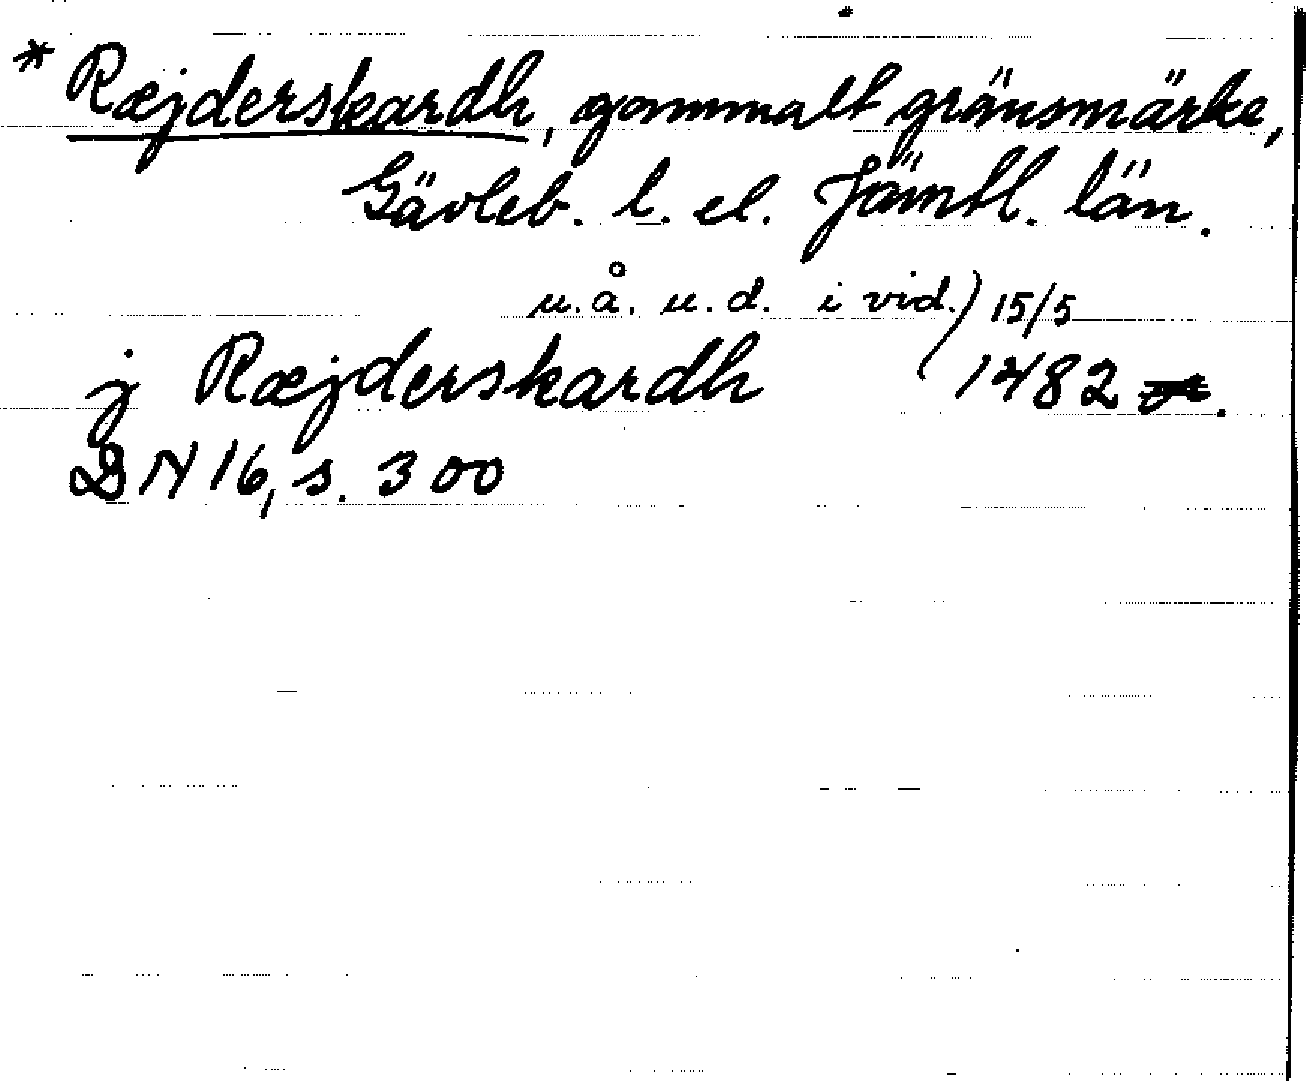 * Ræjderskardh, gammalt gränsmärke,
Gävleb. l. el. Jämtl. län.
u.å. u.d. i vid.) 15/5
j Ræjderskardh (1482
DN 16, s. 300